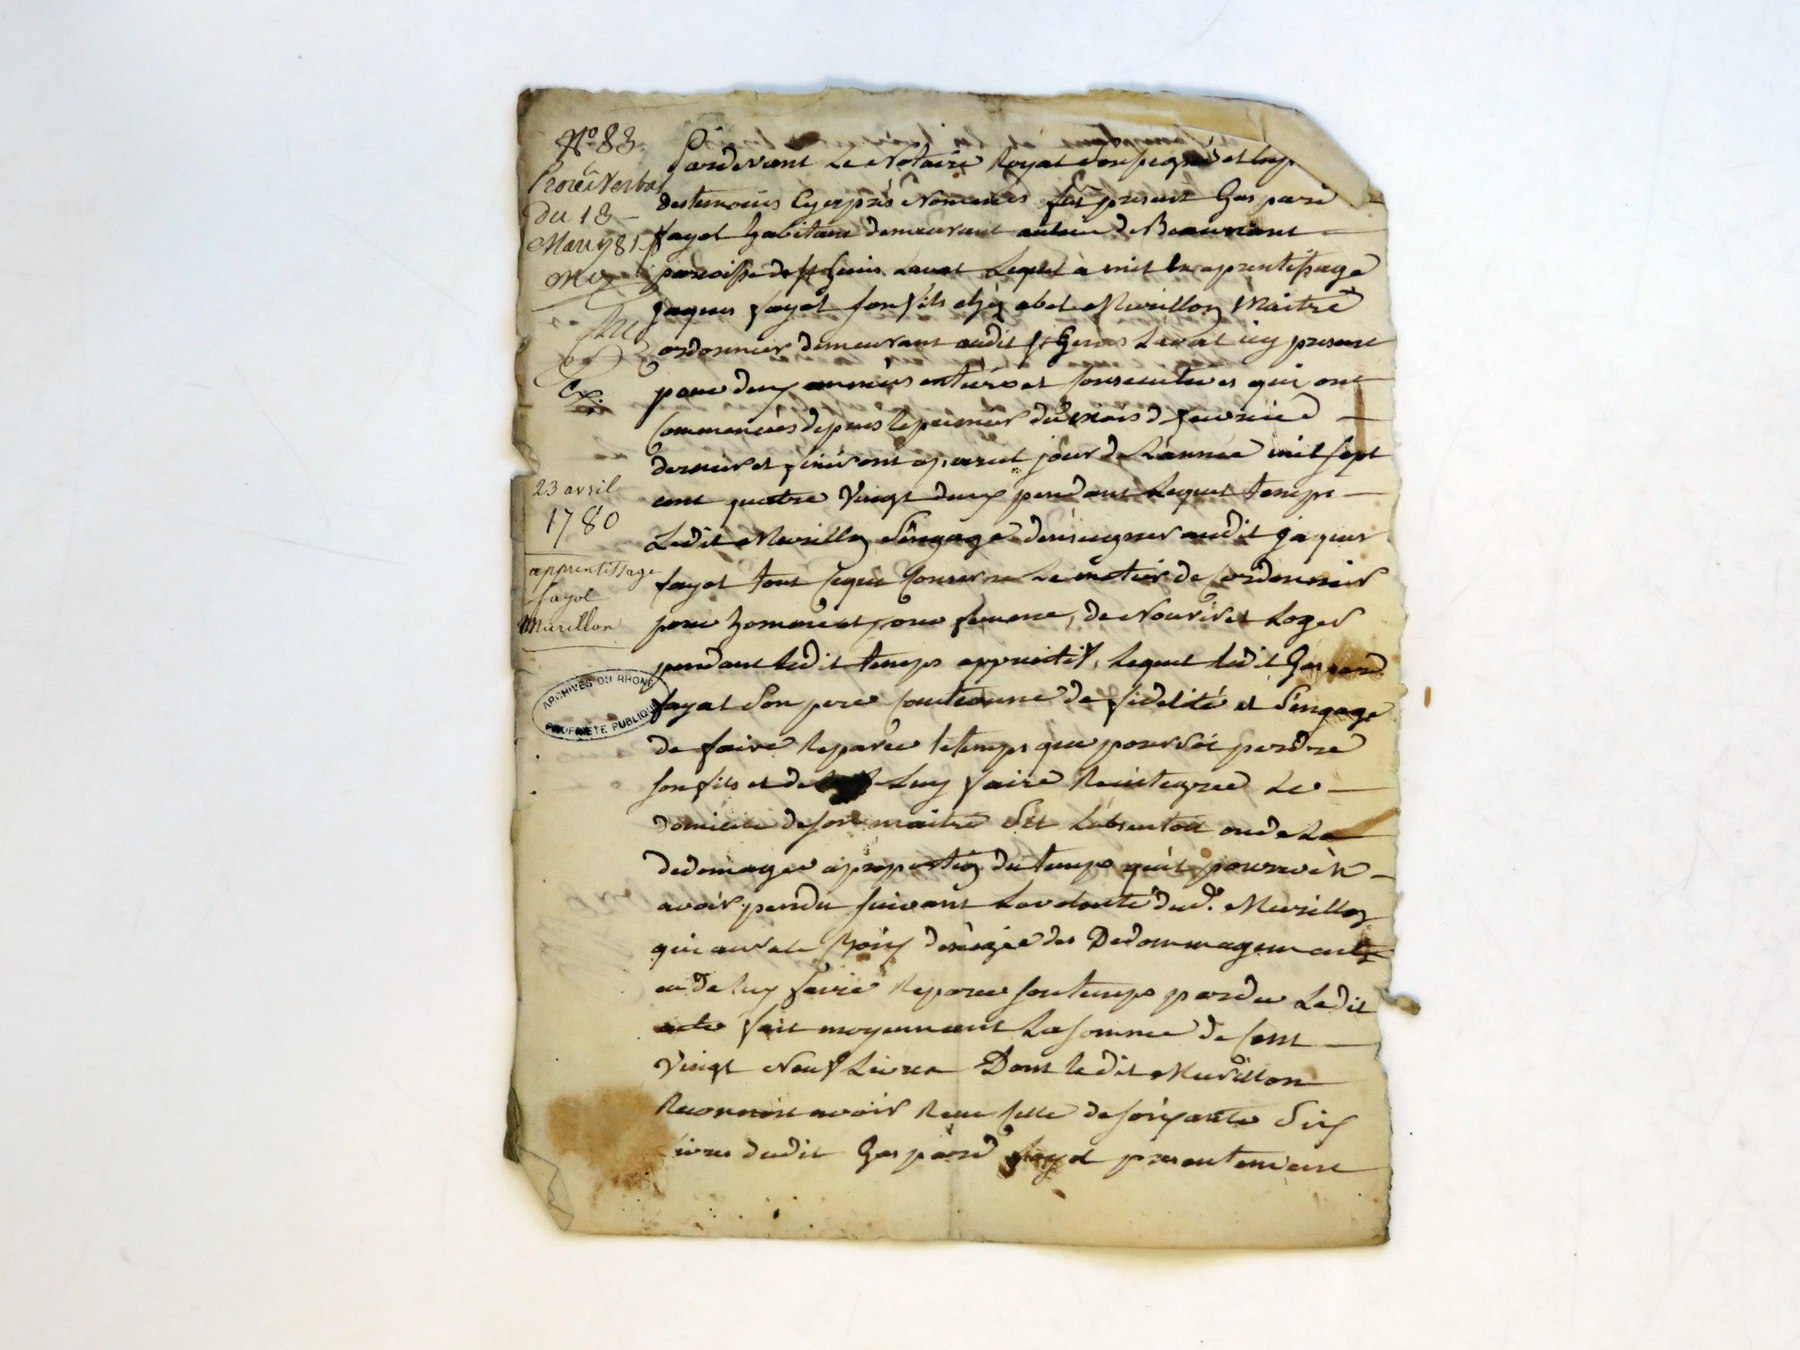 N° 83.
Procès Verbal
du 13
Mars 1781
23 avril
1780
apprentissage
fayol
Murillon
ARCHIVES DU RHONE
PROPRIÉTÉ PUBLIQUE
Pardevant Le Notaire Royal soussigné et
des temoins Cy aprés Nommés fut present Gaspard
fayol habitant demeurant de Beaunant
paroisse de st Genis Laval Lequel à mit en aprentissage
Jaques fayol son fils chez abel Murillon Maitre
Cordonnier demeurant audit st Genis Laval icy present
pour deux années entieres et Consecutives qui ont
Commencées depuis le premier du mois de fevrier
dernier et finiront a pareil jour de Lannée mil sept
cent quatre Vingt deux pendant Lequel temps
Ledit Murillon S'engage denseigner audit Jaques
fayol tout ce qui Concerne Le metier de Cordonnier
pour homme et pour femme, de Nourir et Loger
pendant ledit temps apprentif, Lequel ledit Gaspard
fayol son pere Cautionne de fidelité et S'engage
de faire reparer le temps que pourroit perdre
son fils et de Luy faire Reintegrer Le
domicile de son maitre s'il s'absentoit ou de Le
dedomager a proportion du temps qu'il pourroit
avoir perdu suivant La volonté dud. Murillon
qui aura le choix d'exiger des Dedommagements
ou de luy faire Reparer son temps perdu Ledit
acte fait moyennant La somme de Cent
Vingt Neuf Livres Dont ledit Murillon
Reconnoit avoir Recu celle de soixante Six
Livres dudit Gaspard fayol presentement